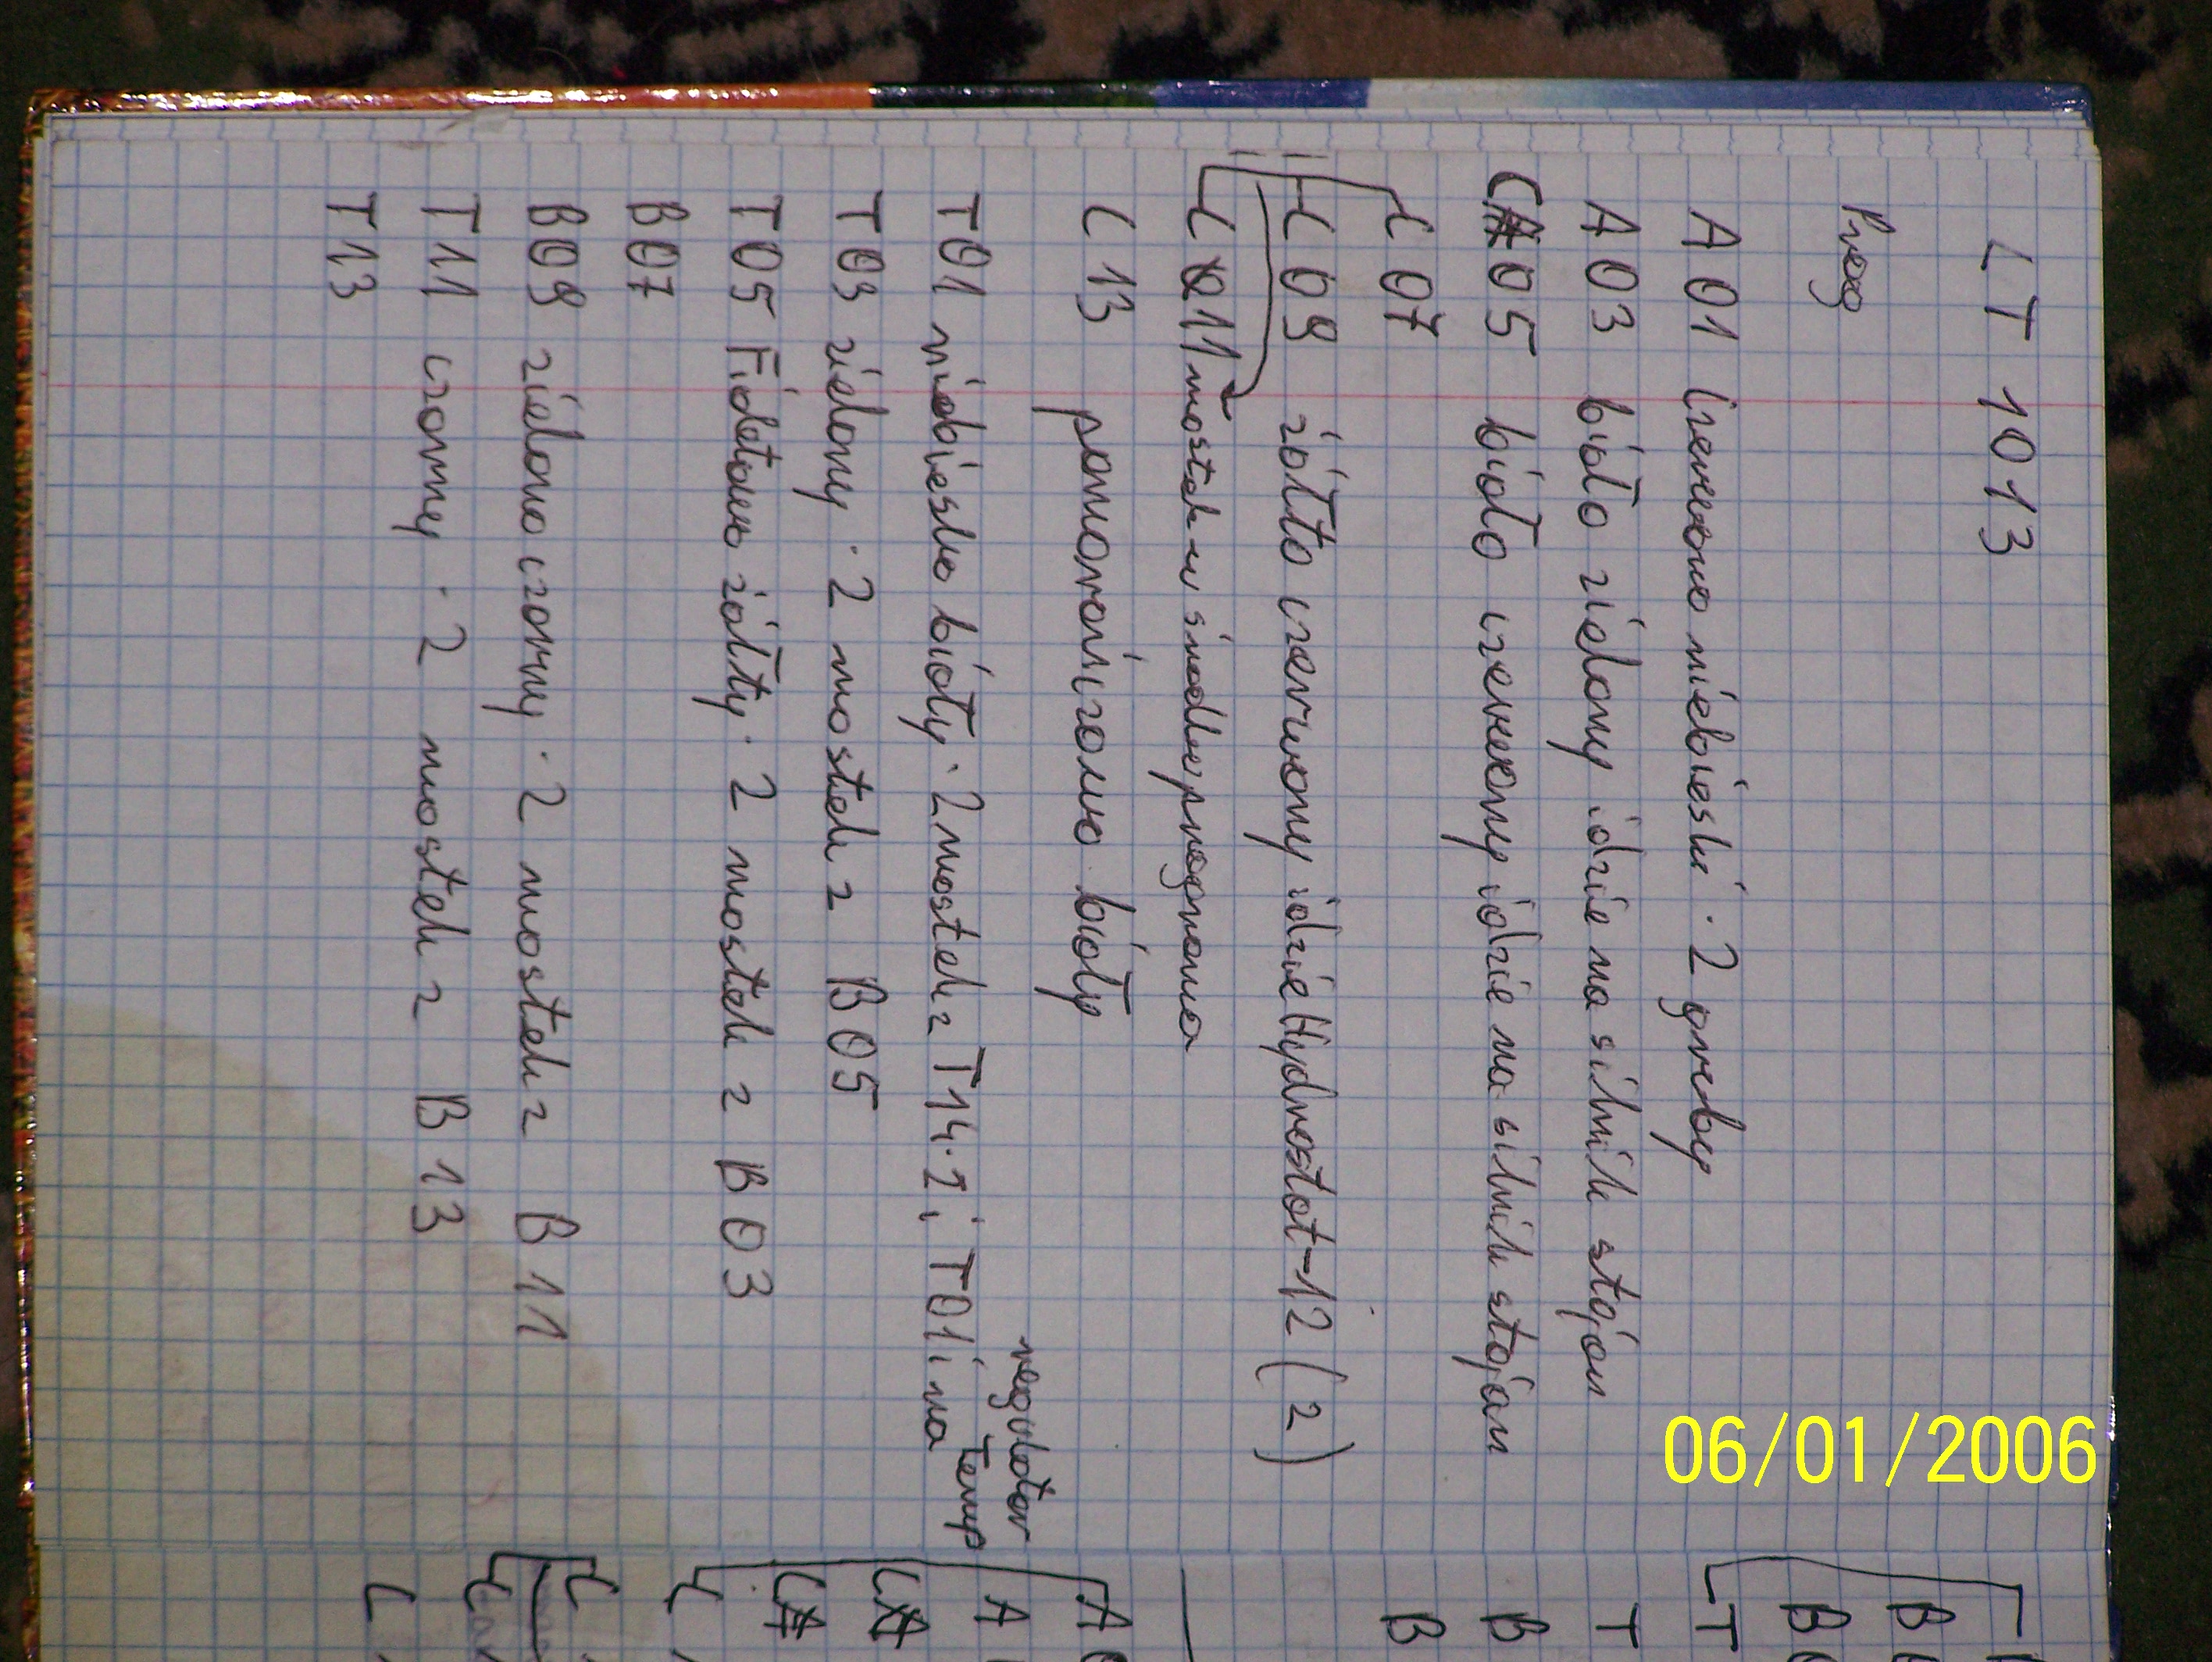 LT 1013
Prog
A01 czerwono niebieski · 2 grzby
A03 biało zielony idzie na silnik stojan
C05 biało czerwony idzie na silnik stojan
C07
C09 żółto czerwony idzie Hydrostat-12 (2)
C011 mostek w środku programa
C13 pomarańczowo biały
regulator
T01 niebiesko biały · 2 mostek z T14·2 i T01 i na Temp
T03 zielony · 2 mostek z B05
T05 Fioletowo żółty · 2 mostek z B03
B07
B09 zielono czarny · 2 mostek z B11
T11 czarny · 2 mostek z B13
T13
06/01/2006
B
B
T
T
B
B
A
A
C